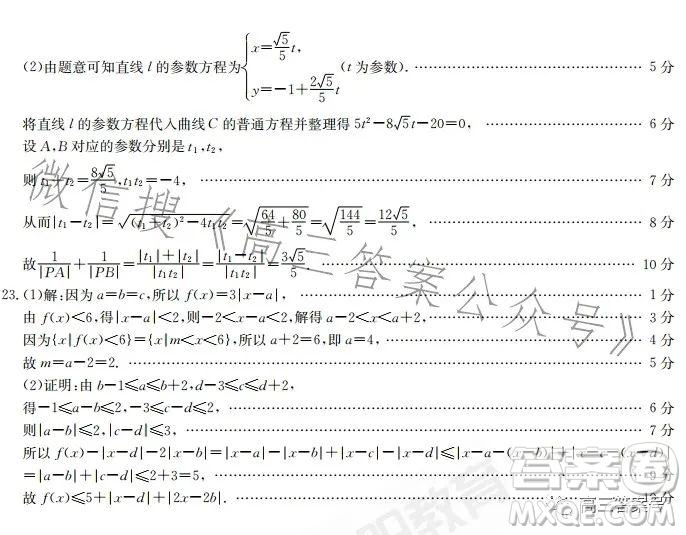 (2)由题意可知直线 l 的参数方程为{x=√5/5 t, y=-1+2√5/5 t (t 为参数). …… 5 分
将直线 l 的参数方程代入曲线 C 的普通方程并整理得 5t²-8√5t-20=0, …… 6 分
设 A,B 对应的参数分别是 t₁,t₂,
则 t₁+t₂=8√5/5,t₁t₂=-4, …… 7 分
从而|t₁-t₂|=√((t₁+t₂)²-4t₁t₂)=√(64/5+80/5)=√(144/5)=12√5/5, …… 8 分
故1/|PA|+1/|PB|=(|t₁|+|t₂|)/|t₁t₂|=|t₁-t₂|/|t₁t₂|=3√5/5. …… 10 分
23.(1)解:因为 a=b=c,所以 f(x)=3|x-a|, …… 1 分
由 f(x)<6,得|x-a|<2,则-2<x-a<2,解得 a-2<x<a+2, …… 3 分
因为{x|f(x)<6}={x|m<x<6},所以 a+2=6,即 a=4, …… 4 分
故 m=a-2=2. …… 5 分
(2)证明:由 b-1≤a≤b+2,d-3≤c≤d+2,
得-1≤a-b≤2,-3≤c-d≤2, …… 6 分
则|a-b|≤2,|c-d|≤3, …… 7 分
所以 f(x)-|x-d|-2|x-b|=|x-a|-|x-b|+|x-c|-|x-d|≤|x-a-(x-b)|+|x-c-(x-d)|
=|a-b|+|c-d|≤2+3=5, …… 9 分
故 f(x)≤5+|x-d|+|2x-2b|. ……
微信搜《高三答案公众号》
教育
答案圈
MXQE.COM
高三答案号